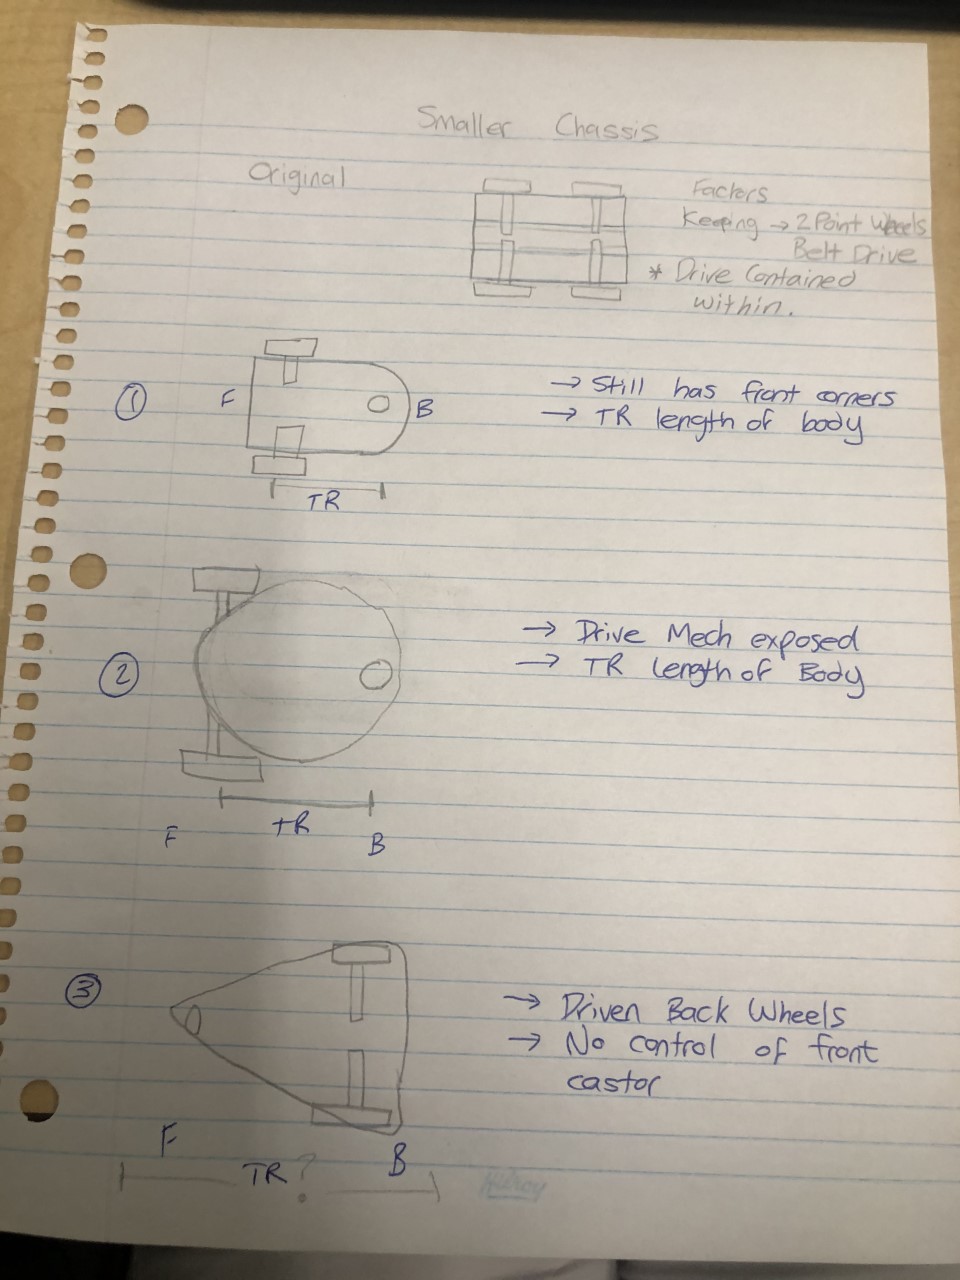 Smaller Chassis
Original
Factors
Keeping → 2 Point Wheels
Belt Drive
* Drive Contained
within.
①
F
B
TR
→ Still has front corners
→ TR length of body
②
→ Drive Mech exposed
→ TR length of Body
TR
F
B
③
→ Driven Back Wheels
→ No control of front
castor
F
B
TR?
Hilroy